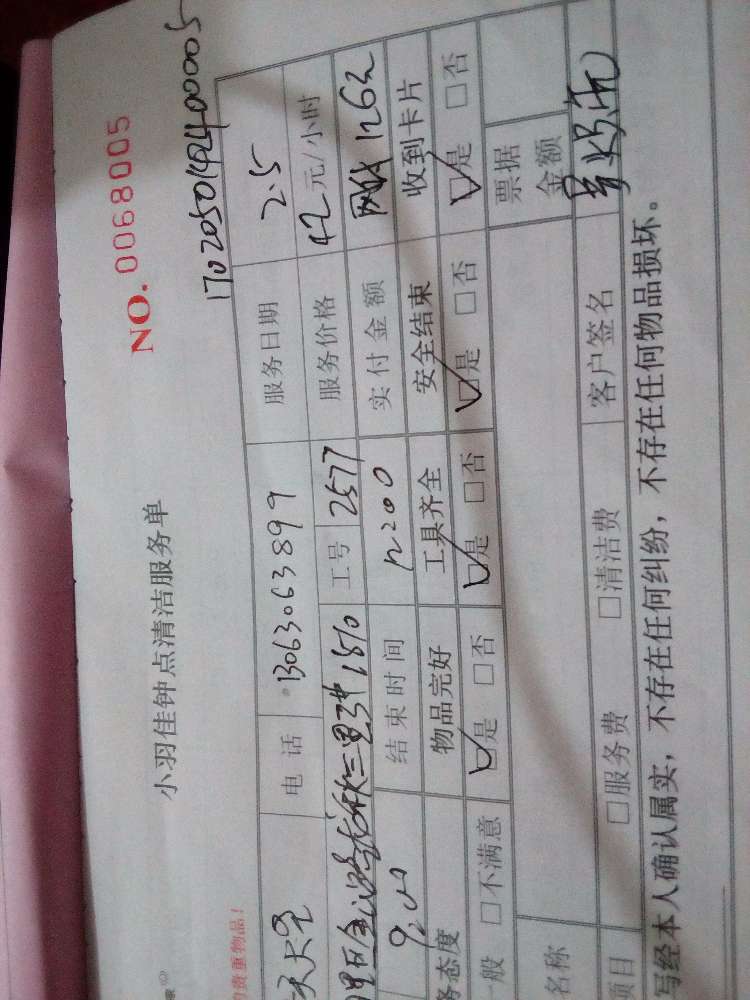 NO. 0068005
1702050149400005
小羽佳钟点清洁服务单
的贵重物品!
电 话 13063063899 服务日期 2.5
工号 2577 服务价格 42元/小时
9:00 结束时间 12:00 实付金额 网付 126元
务态度 物品完好 工具齐全 安全结束 收到卡片
一般 □不满意 ☑是 □否 ☑是 □否 ☑是 □否 ☑是 □否
名称 票据金额
项目 □服务费 □清洁费 客户签名
写经本人确认属实，不存在任何纠纷，不存在任何物品损坏。